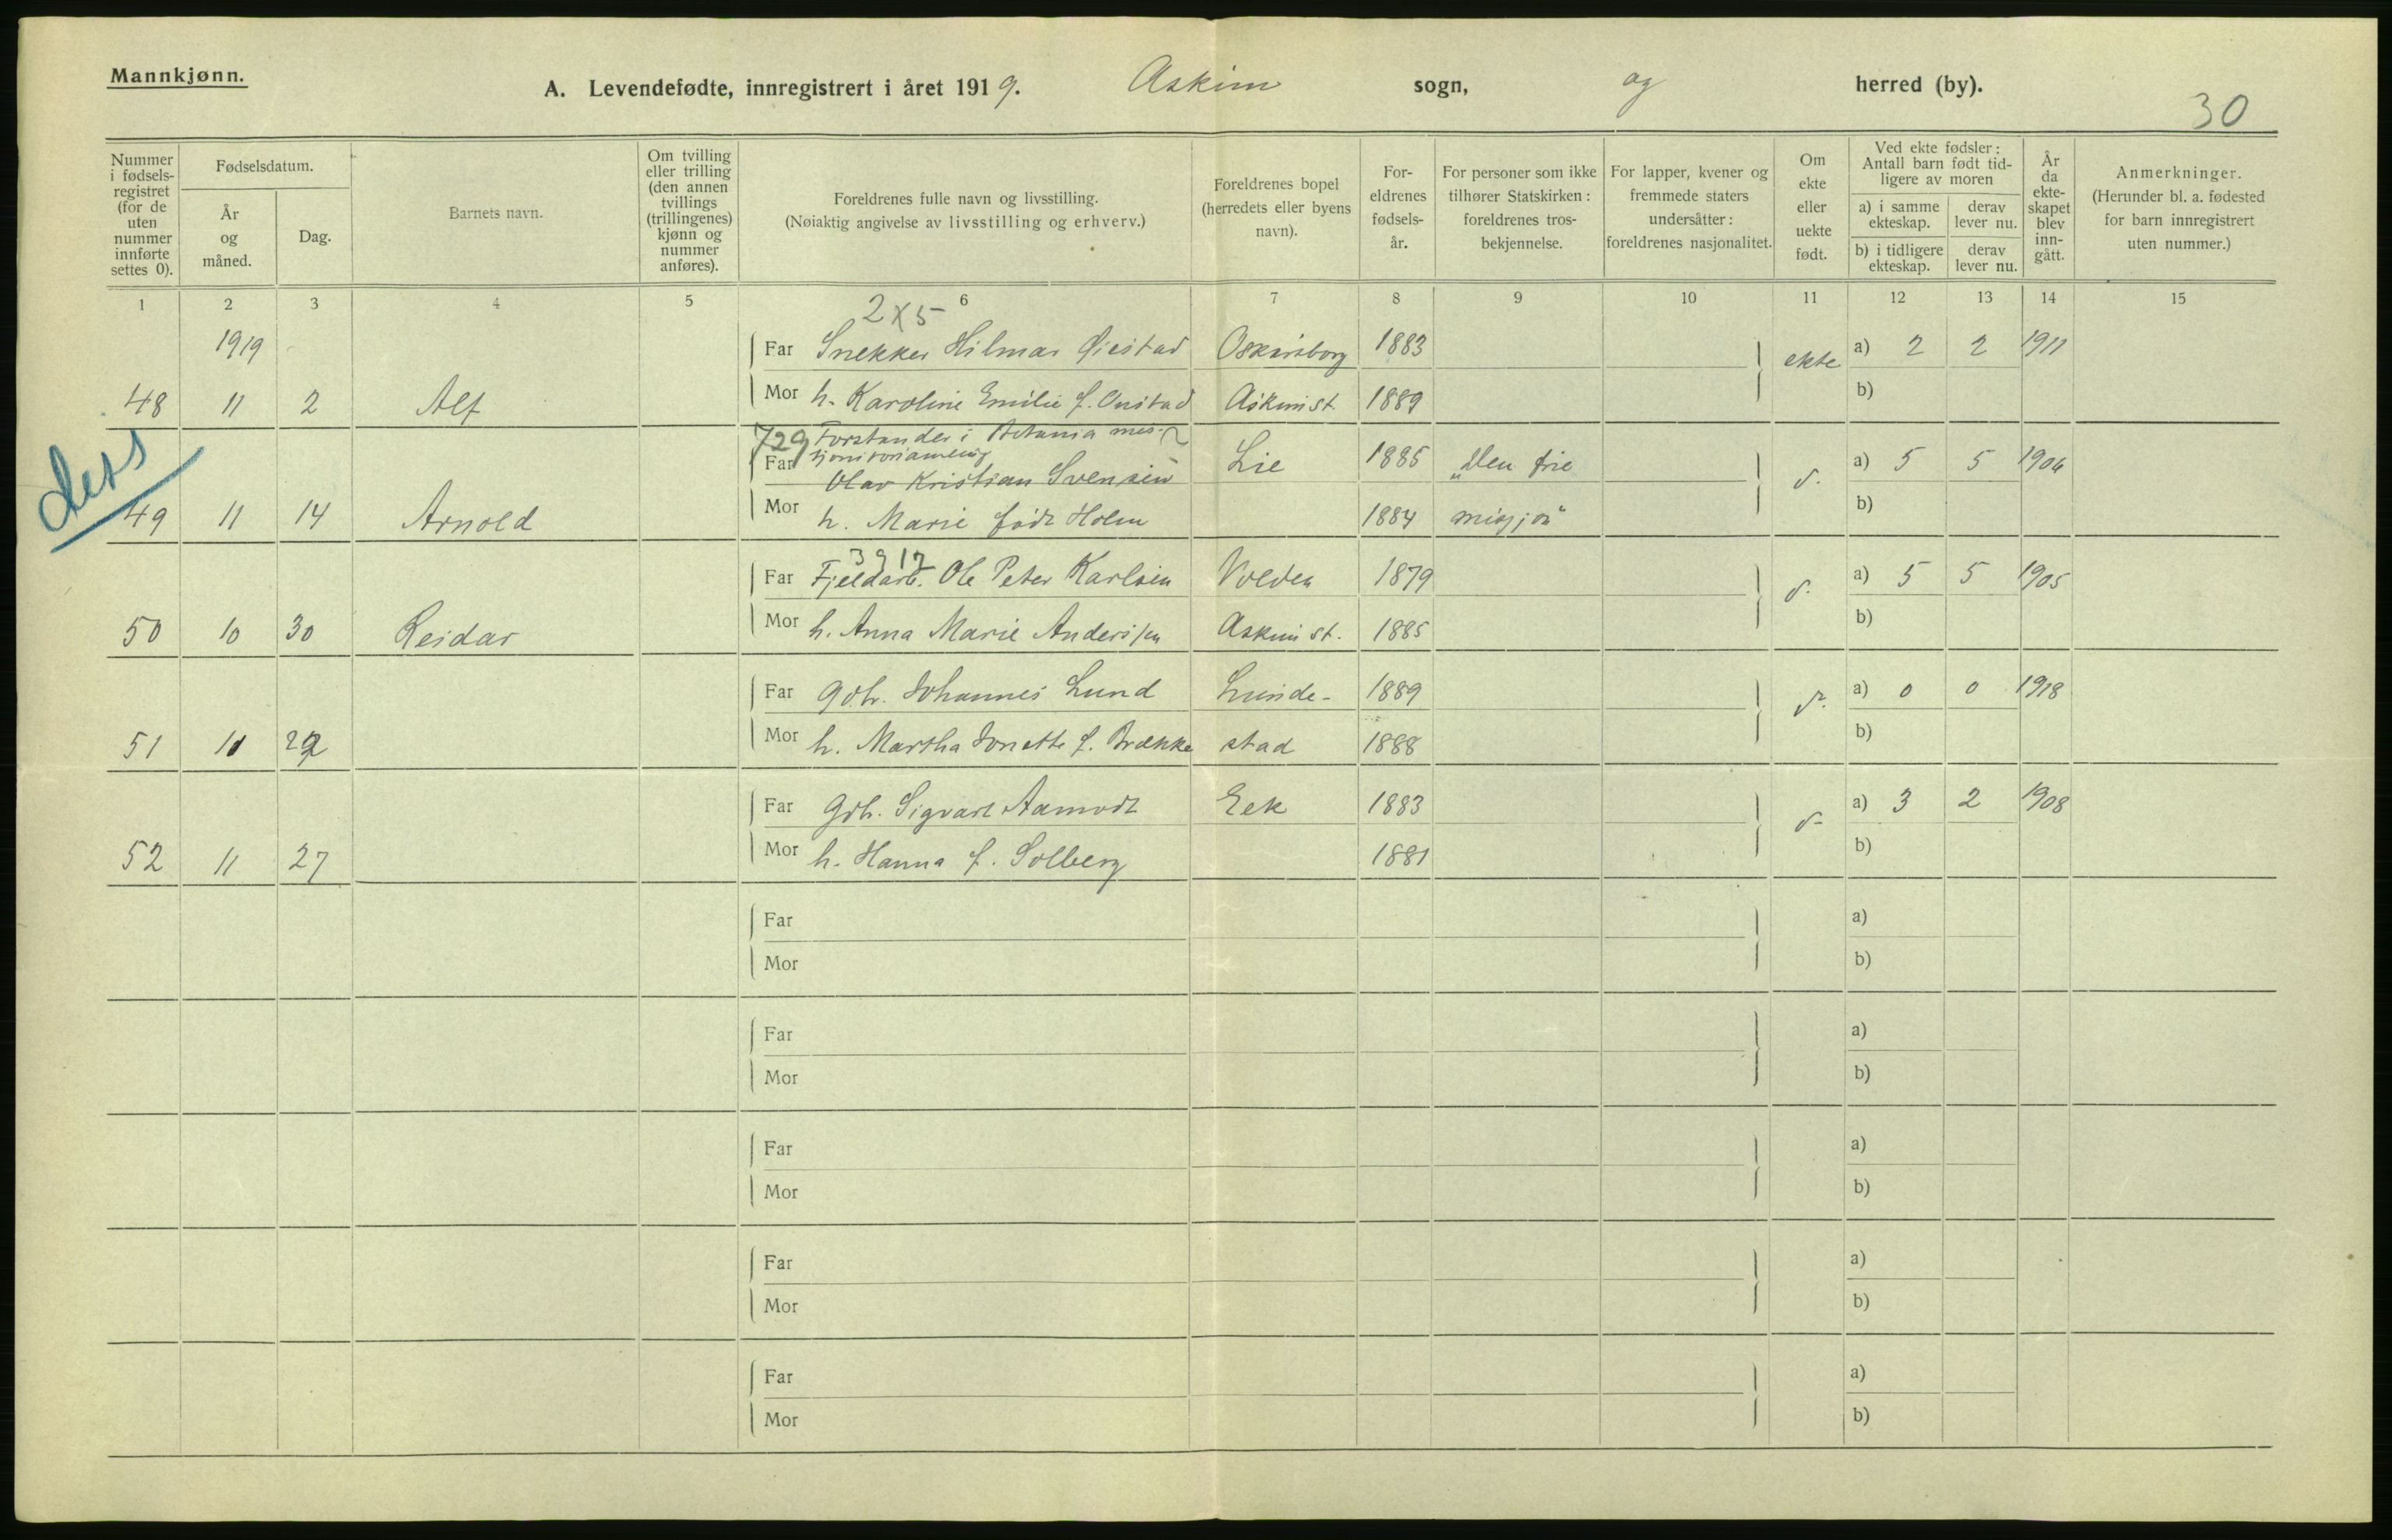 Mannkjønn.
A. Levendefødte, innregistrert i året 1919. Askim sogn, og herred (by).
30
Nummer i fødsels-registret (for de uten nummer innførte settes 0).
Fødselsdatum.
År og måned.
Dag.
Barnets navn.
Om tvilling eller trilling (den annen tvillings (trillingenes) kjønn og nummer anføres).
Foreldrenes fulle navn og livsstilling.
(Nøiaktig angivelse av livsstilling og erhverv.)
Foreldrenes bopel (herredets eller byens navn).
For-eldrenes fødsels-år.
For personer som ikke tilhører Statskirken: foreldrenes tros-bekjennelse.
For lapper, kvener og fremmede staters undersåtter: foreldrenes nasjonalitet.
Om ekte eller uekte født.
Ved ekte fødsler: Antall barn født tid-ligere av moren
a) i samme ekteskap.
derav lever nu.
b) i tidligere ekteskap.
derav lever nu.
År da ekte-skapet blev inn-gått.
Anmerkninger.
(Herunder bl. a. fødested for barn innregistrert uten nummer.)
1 2 3 4 5 6 7 8 9 10 11 12 13 14 15
2 x 5
1919 Far Snekker Hilmar Øiestad Oskarsborg 1883 ekte a) 2 2 1911
48 11 2 Alf Mor h. Karoline Emilie f. Onstad Askim st. 1889 b)
729 Forstander i Betania mis-
sjonsforsamling
Far Olav Kristian Svensen Lie 1885 "Den frie d. a) 5 5 1906
ders
49 11 14 Arnold Mor h. Marie født Holm 1884 misjon" b)
3917
Far Fjeldarb. Ole Peter Karlsen Volden 1879 d. a) 5 5 1905
50 10 30 Reidar Mor h. Anna Marie Andersen Askim st. 1885 b)
Far Gdbr. Johannes Lund Lunde- 1889 d. a) 0 0 1918
51 10 22 Mor h. Martha Jonette f. Brække stad 1888 b)
Far Gdbr. Sigvart Aamodt Eek 1883 d. a) 3 2 1908
52 11 27 Mor h. Hanna f. Solberg 1881 b)
Far a)
Mor b)
Far a)
Mor b)
Far a)
Mor b)
Far a)
Mor b)
Far a)
Mor b)